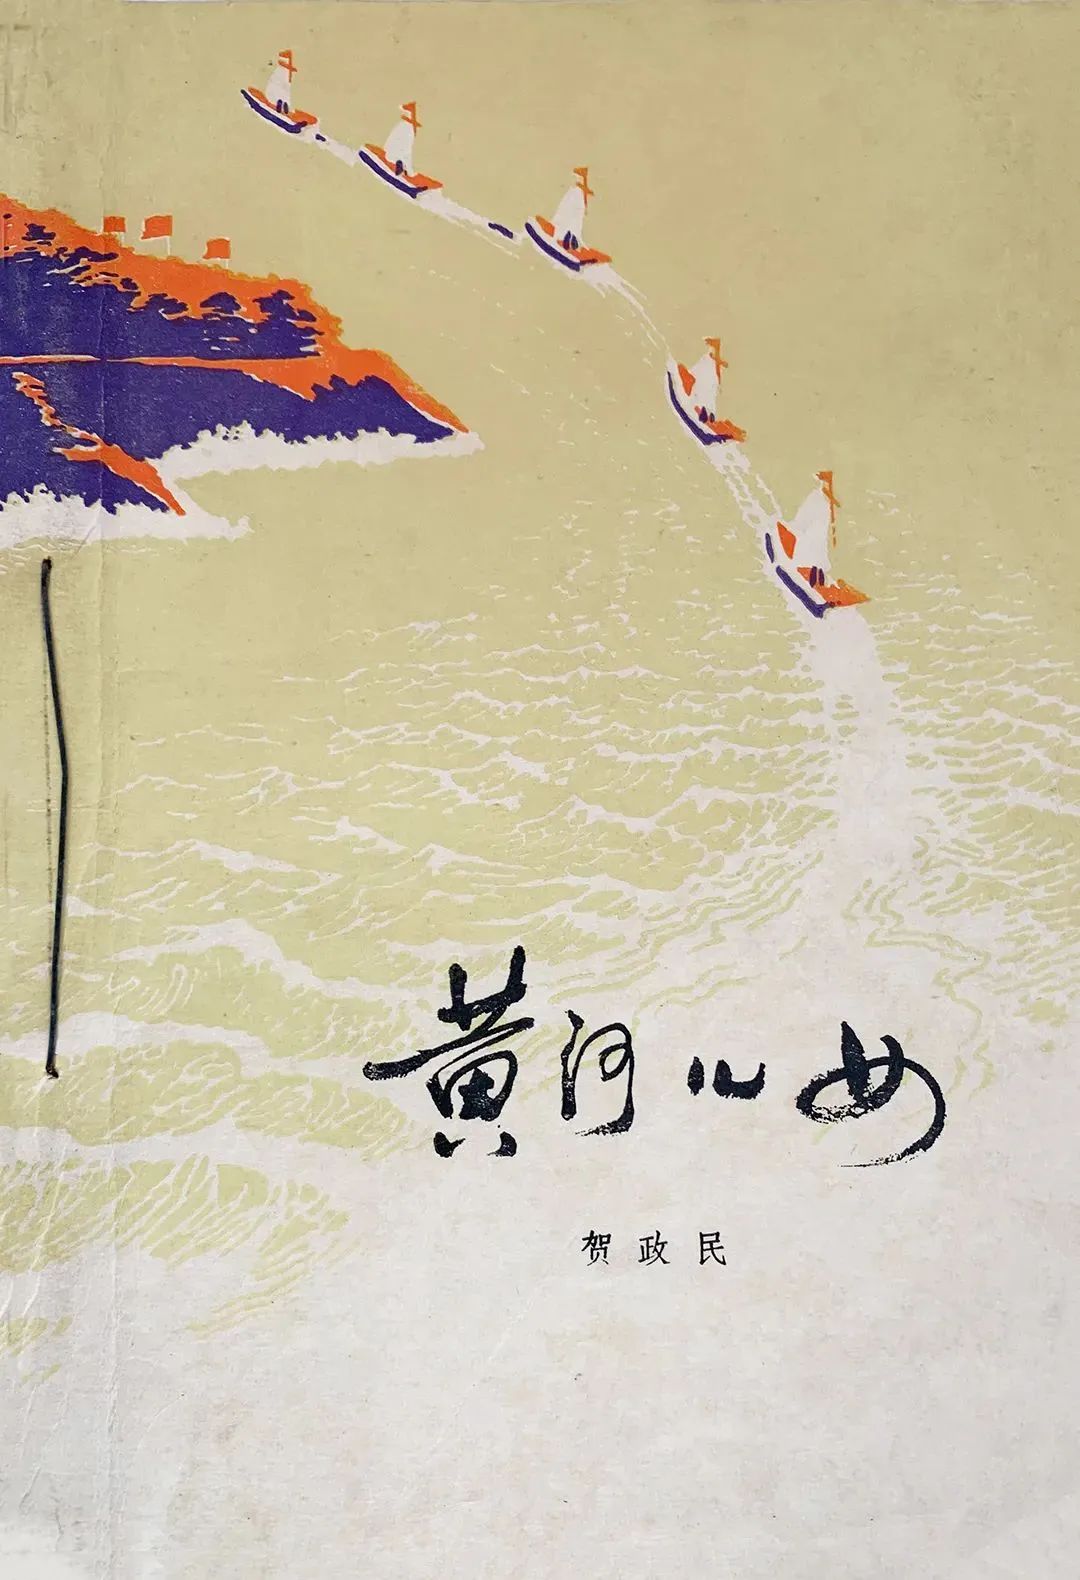 黄河儿女
贺政民